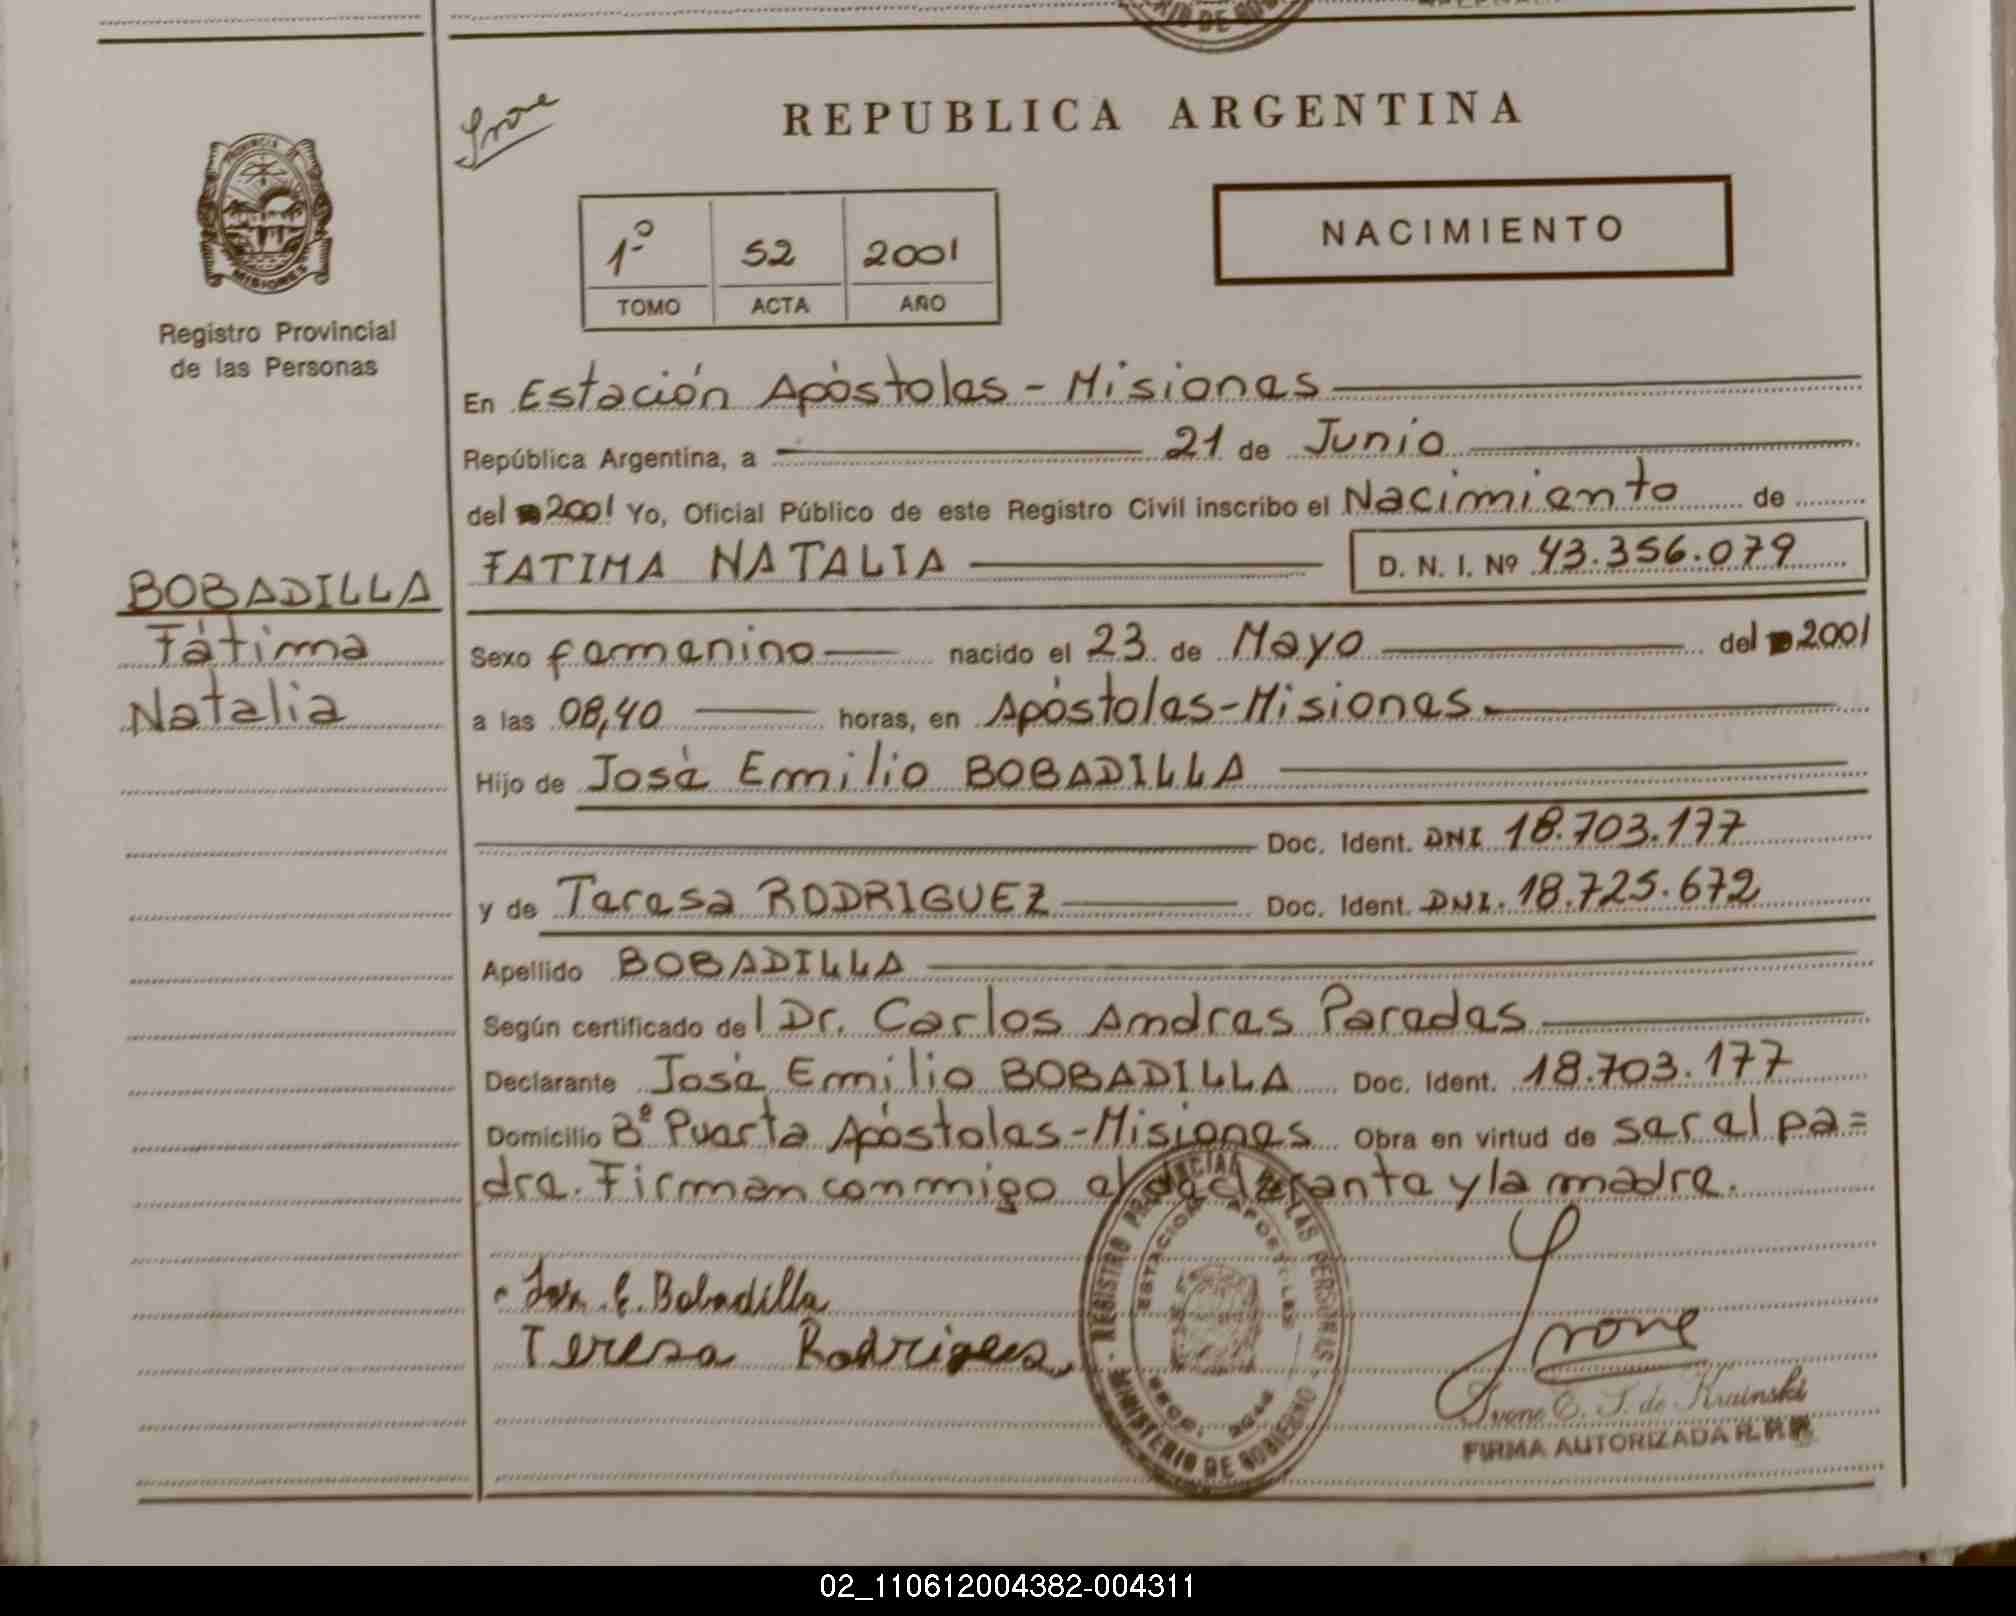 REPUBLICA ARGENTINA
PROVINCIA DE
MISIONES
Registro Provincial
de las Personas
NACIMIENTO
1º 52 2001
TOMO ACTA AÑO
En Estación Apóstoles - Misiones
República Argentina, a 21 de Junio
del 2001 Yo, Oficial Público de este Registro Civil inscribo el Nacimiento de
FATIMA NATALIA D. N. I. Nº 43.356.079
BOBADILLA
Fátima
Natalia
Sexo femenino nacido el 23 de Mayo del 2001
a las 08,40 horas, en Apóstoles-Misiones.
Hijo de José Emilio BOBADILLA
Doc. Ident. DNI 18.703.177
y de Teresa RODRIGUEZ Doc. Ident. DNI. 18.725.672
Apellido BOBADILLA
Según certificado del Dr. Carlos Andres Paredes
Declarante José Emilio BOBADILLA Doc. Ident. 18.703.177
Domicilio Bº Puerta Apóstoles-Misiones Obra en virtud de ser el pa=
dre. Firman conmigo el declarante y la madre.
E. Bobadilla
Teresa Rodrigues
REGISTRO PROVINCIAL DE LAS PERSONAS
ESTACION APOSTOLES
MINISTERIO DE GOBIERNO
Ivone
Ivone E. J. de Kruinski
FIRMA AUTORIZADA R.P.P.
02_110612004382-004311